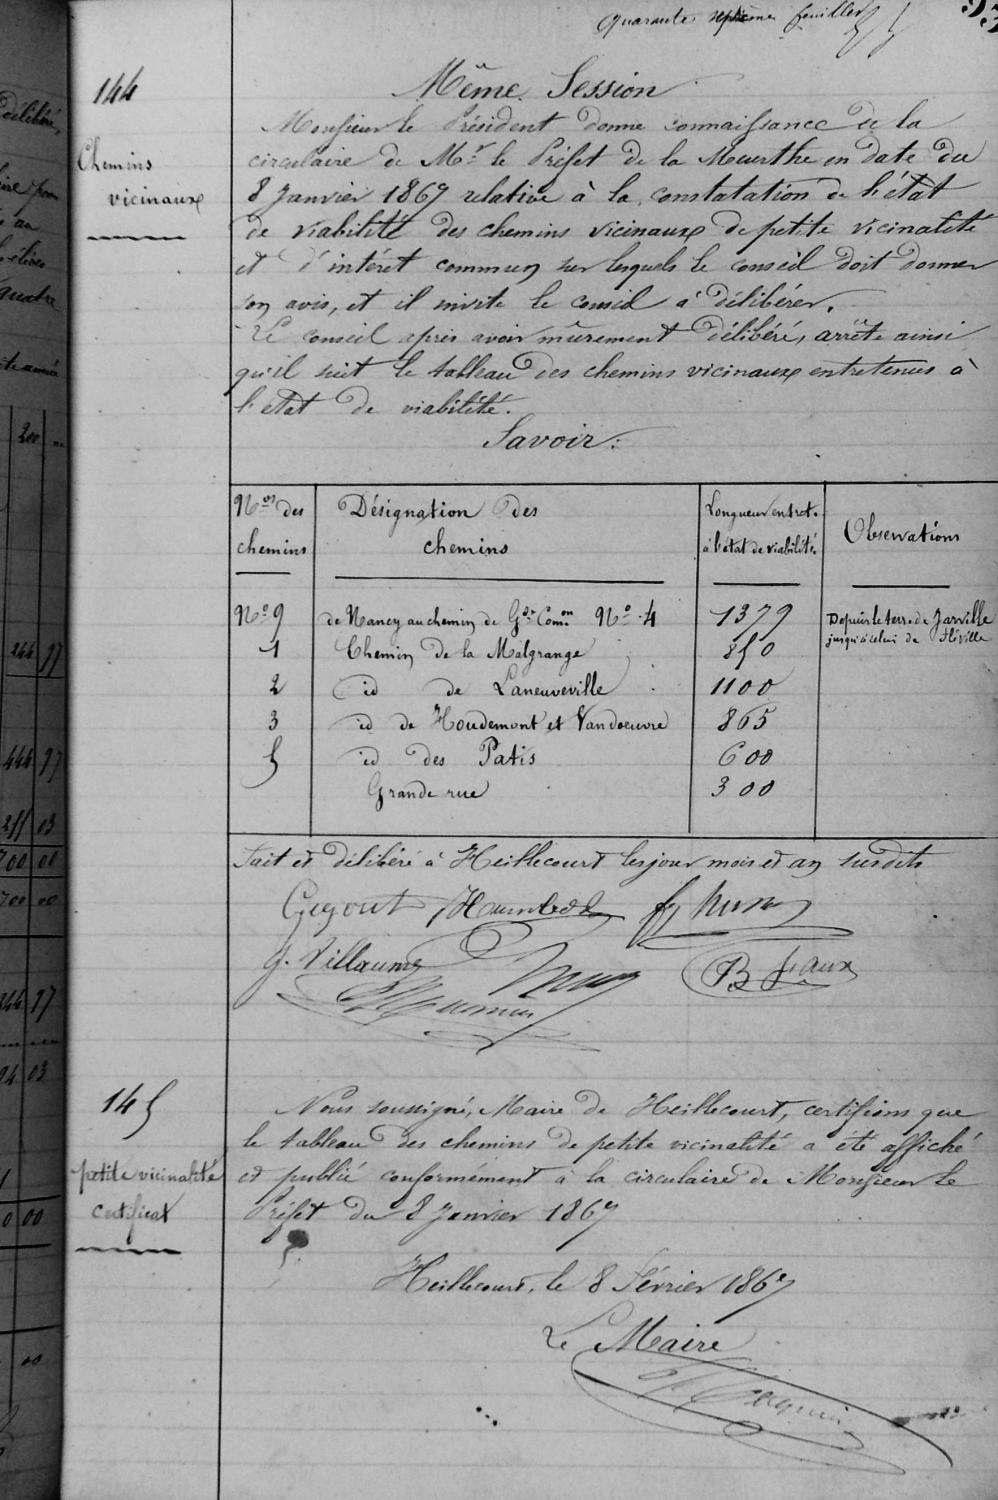 quarante septième feuillet
144
Chemins
vicinaux
Même Session
Monsieur le Président donne connaissance de la
circulaire de Mr le Préfet de la Meurthe en date du
8 Janvier 1867 relative à la constatation de l'état
de viabilité des chemins vicinaux de petite vicinalité
et d'intérêt commun sur lesquels le conseil doit donner
son avis, et il invite le conseil à délibérer.
Le conseil après avoir mûrement délibéré, arrête ainsi
qu'il suit le tableau des chemins vicinaux entretenus à
l'état de viabilité.
Savoir:
Nos des chemins | Désignation des chemins | Longueur entret. à l'état de viabilité. | Observations
No 9 | de Nancy au chemin de Gde Comon No 4 | 1379 | Depuis le terre de Jarville jusqu'à celui de Fléville
1 | Chemin de la Malgrange | 850
2 | id de Laneuveville | 1100
3 | id de Houdemont et Vandoeuvre | 865
5 | id des Patis | 600
Grande rue | 300
Fait et délibéré à Heillecourt les jour mois et an susdits
Guyout Humbert
G. Villaume B Jeaux
145
petite vicinalité
certificat
Nous soussigné, Maire de Heillecourt, certifions que
le tableau des chemins de petite vicinalité a été affiché
et publié conformément à la circulaire de Monsieur le
Préfet du 8 Janvier 1867
Heillecourt, le 8 Février 1867
Le Maire